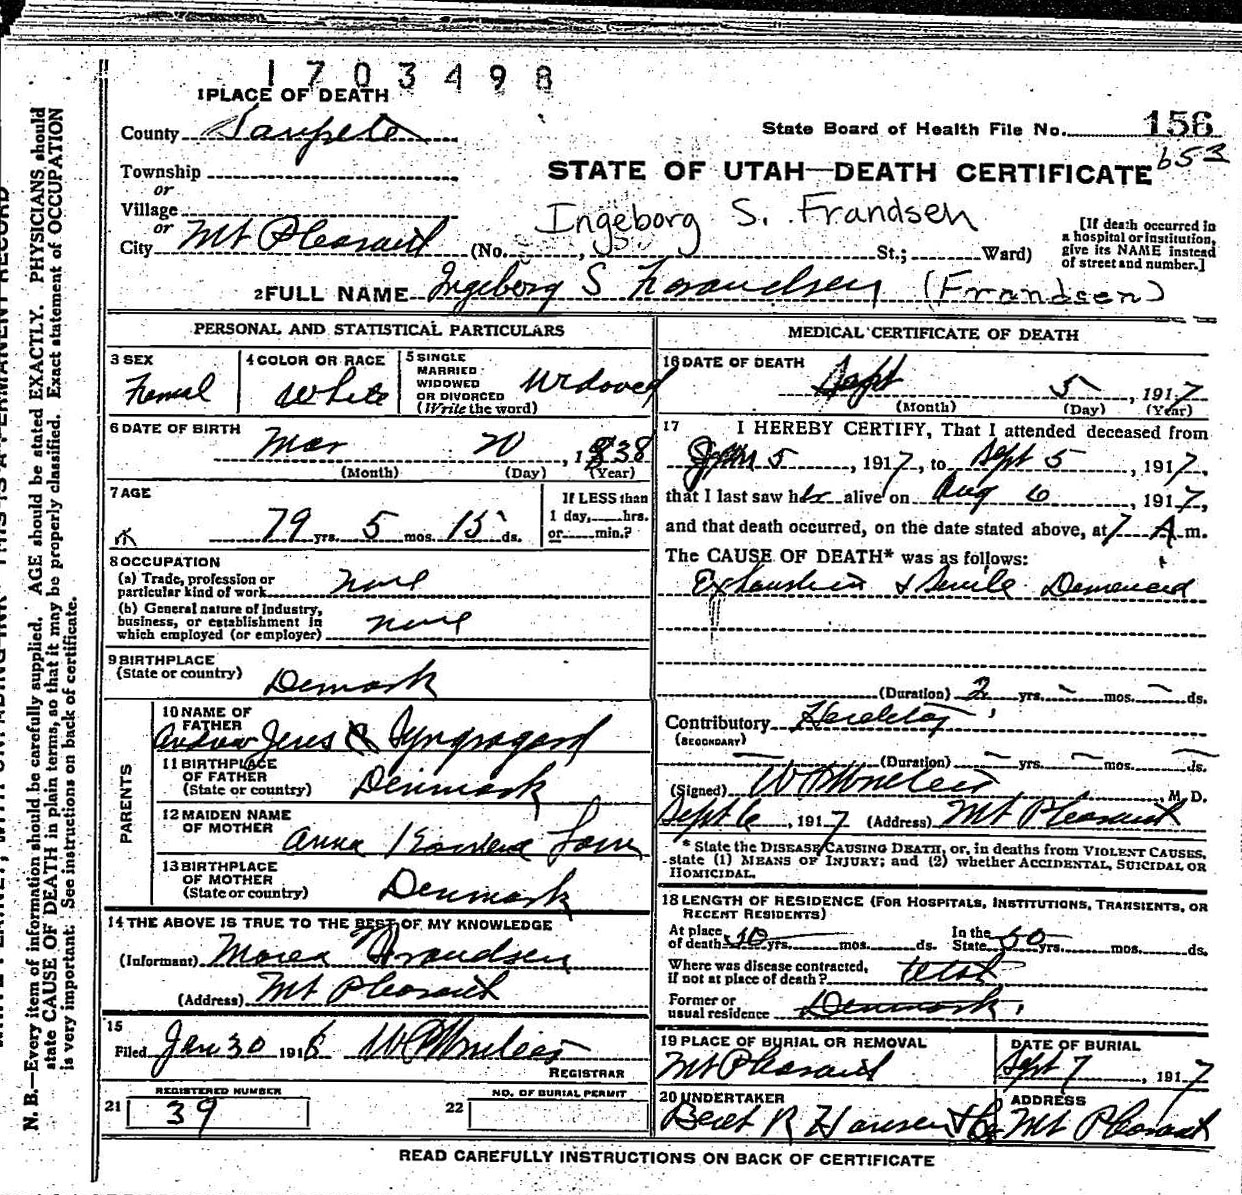 1703498
1 PLACE OF DEATH
County Sanpete
State Board of Health File No. 156
653
Township
or
Village
or
City Mt Pleasant (No. , St.; Ward)
STATE OF UTAH—DEATH CERTIFICATE
Ingeborg S. Frandsen
[If death occurred in
a hospital or institution,
give its NAME instead
of street and number.]
2 FULL NAME Ingeborg S Frandsen (Frandsen)
PERSONAL AND STATISTICAL PARTICULARS
3 SEX
Femal
4 COLOR OR RACE
White
5 SINGLE
MARRIED
WIDOWED
OR DIVORCED
(Write the word)
Widoved
6 DATE OF BIRTH
Mar 20, 1838
(Month) (Day) (Year)
7 AGE
79 yrs. 5 mos. 15 ds.
If LESS than
1 day, hrs.
or min.?
8 OCCUPATION
(a) Trade, profession or
particular kind of work none
(b) General nature of Industry,
business, or establishment in
which employed (or employer) none
9 BIRTHPLACE
(State or country) Demark
PARENTS
10 NAME OF
FATHER
Andrew Jens
11 BIRTHPLACE
OF FATHER
(State or country) Denmark
12 MAIDEN NAME
OF MOTHER
Anna
13 BIRTHPLACE
OF MOTHER
(State or country) Denmark
14 THE ABOVE IS TRUE TO THE BEST OF MY KNOWLEDGE
(Informant) Frandsen
(Address) Mt Pleasant
15
Filed Jan 30 1918
REGISTRAR
REGISTERED NUMBER
21 39
NO. OF BURIAL PERMIT
22
MEDICAL CERTIFICATE OF DEATH
16 DATE OF DEATH
Sept 5, 1917
(Month) (Day) (Year)
17 I HEREBY CERTIFY, That I attended deceased from
5, 1917, to Sept 5, 1917,
that I last saw her alive on Aug 6, 1917,
and that death occurred, on the date stated above, at 7 A m.
The CAUSE OF DEATH* was as follows:
Exhaustion & Senile
(Duration) 2 yrs. - mos. - ds.
Contributory
(SECONDARY)
(Duration) - yrs. - mos. - ds.
(Signed) , M. D.
Sept 6, 1917 (Address) Mt Pleasant
* State the DISEASE CAUSING DEATH, or, in deaths from VIOLENT CAUSES,
state (1) MEANS OF INJURY; and (2) whether ACCIDENTAL, SUICIDAL OR
HOMICIDAL.
18 LENGTH OF RESIDENCE (FOR HOSPITALS, INSTITUTIONS, TRANSIENTS, OR
RECENT RESIDENTS)
At place
of death 50 yrs. mos. ds.
In the
State 50 yrs. mos. ds.
Where was disease contracted,
if not at place of death? Utah
Former or
usual residence Denmark.
19 PLACE OF BURIAL OR REMOVAL
Mt Pleasant
DATE OF BURIAL
Sept 7, 1917
20 UNDERTAKER
R Hansen & Co
ADDRESS
Mt Pleasant
READ CAREFULLY INSTRUCTIONS ON BACK OF CERTIFICATE
N. B.—Every item of information should be carefully supplied. AGE should be stated EXACTLY. PHYSICIANS should
state CAUSE OF DEATH in plain terms, so that it may be properly classified. Exact statement of OCCUPATION
is very important. See instructions on back of certificate.